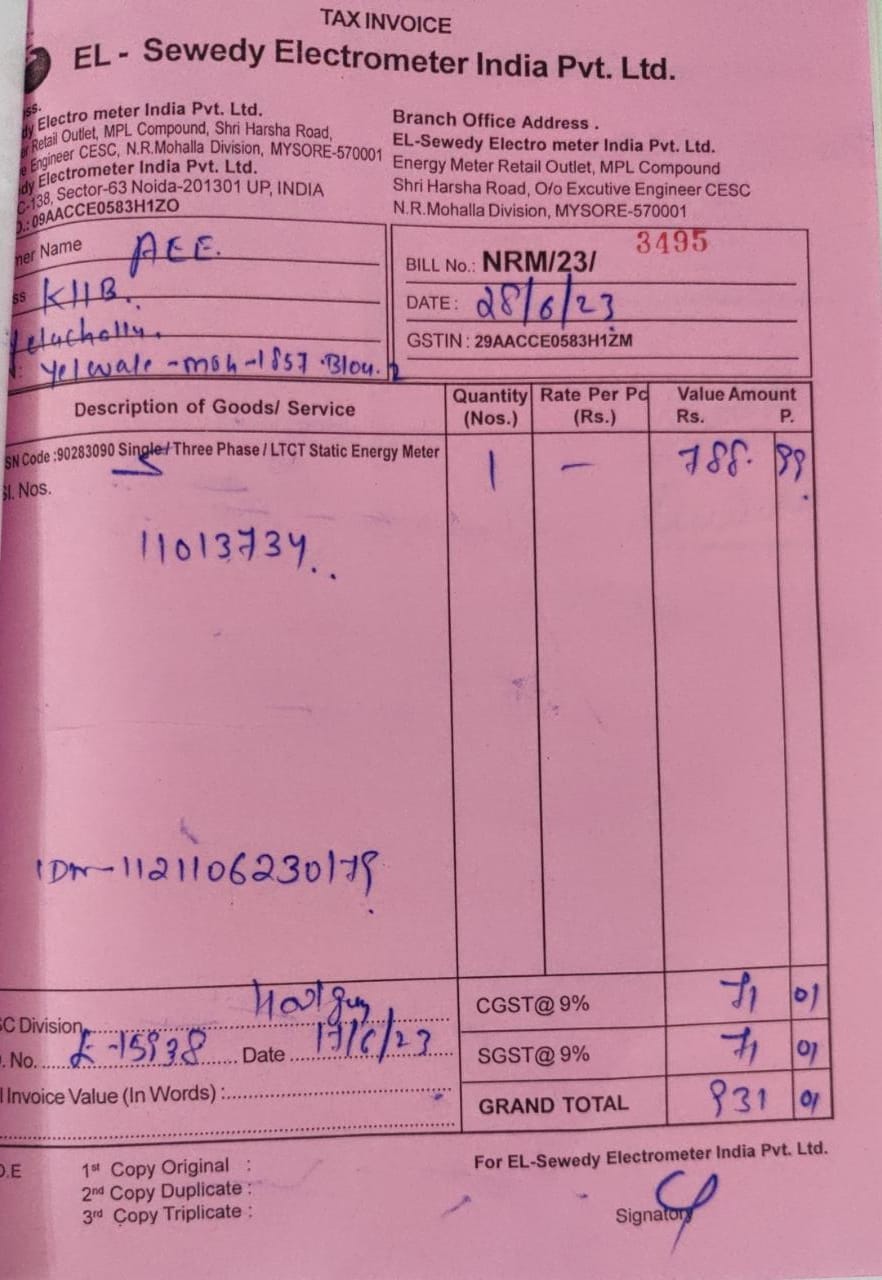 TAX INVOICE
EL - Sewedy Electrometer India Pvt. Ltd.
Electro meter India Pvt. Ltd.
Retail Outlet, MPL Compound, Shri Harsha Road,
Engineer CESC, N.R.Mohalla Division, MYSORE-570001
Electrometer India Pvt. Ltd.
C-138, Sector-63 Noida-201301 UP, INDIA
09AACCE0583H1ZO
Branch Office Address .
EL-Sewedy Electro meter India Pvt. Ltd.
Energy Meter Retail Outlet, MPL Compound
Shri Harsha Road, O/o Excutive Engineer CESC
N.R.Mohalla Division, MYSORE-570001
Name AEE.
KHB.
Yelachally.
Yelwale
BILL No.: NRM/23/ 3495
DATE : 28/6/23
GSTIN : 29AACCE0583H1ZM
Description of Goods/ Service Quantity (Nos.) Rate Per Pc (Rs.) Value Amount Rs. P.
SN Code :90283090 Single/ Three Phase / LTCT Static Energy Meter 1 – 788. 99
Sl. Nos.
11013734..
1121106230179
CGST@ 9% 71 01
C Division
SGST@ 9% 71 01
No. 15938 Date 17/6/23
Invoice Value (In Words) :
GRAND TOTAL 931 01
O.E
1st Copy Original :
2nd Copy Duplicate :
3rd Copy Triplicate :
For EL-Sewedy Electrometer India Pvt. Ltd.
Signatory